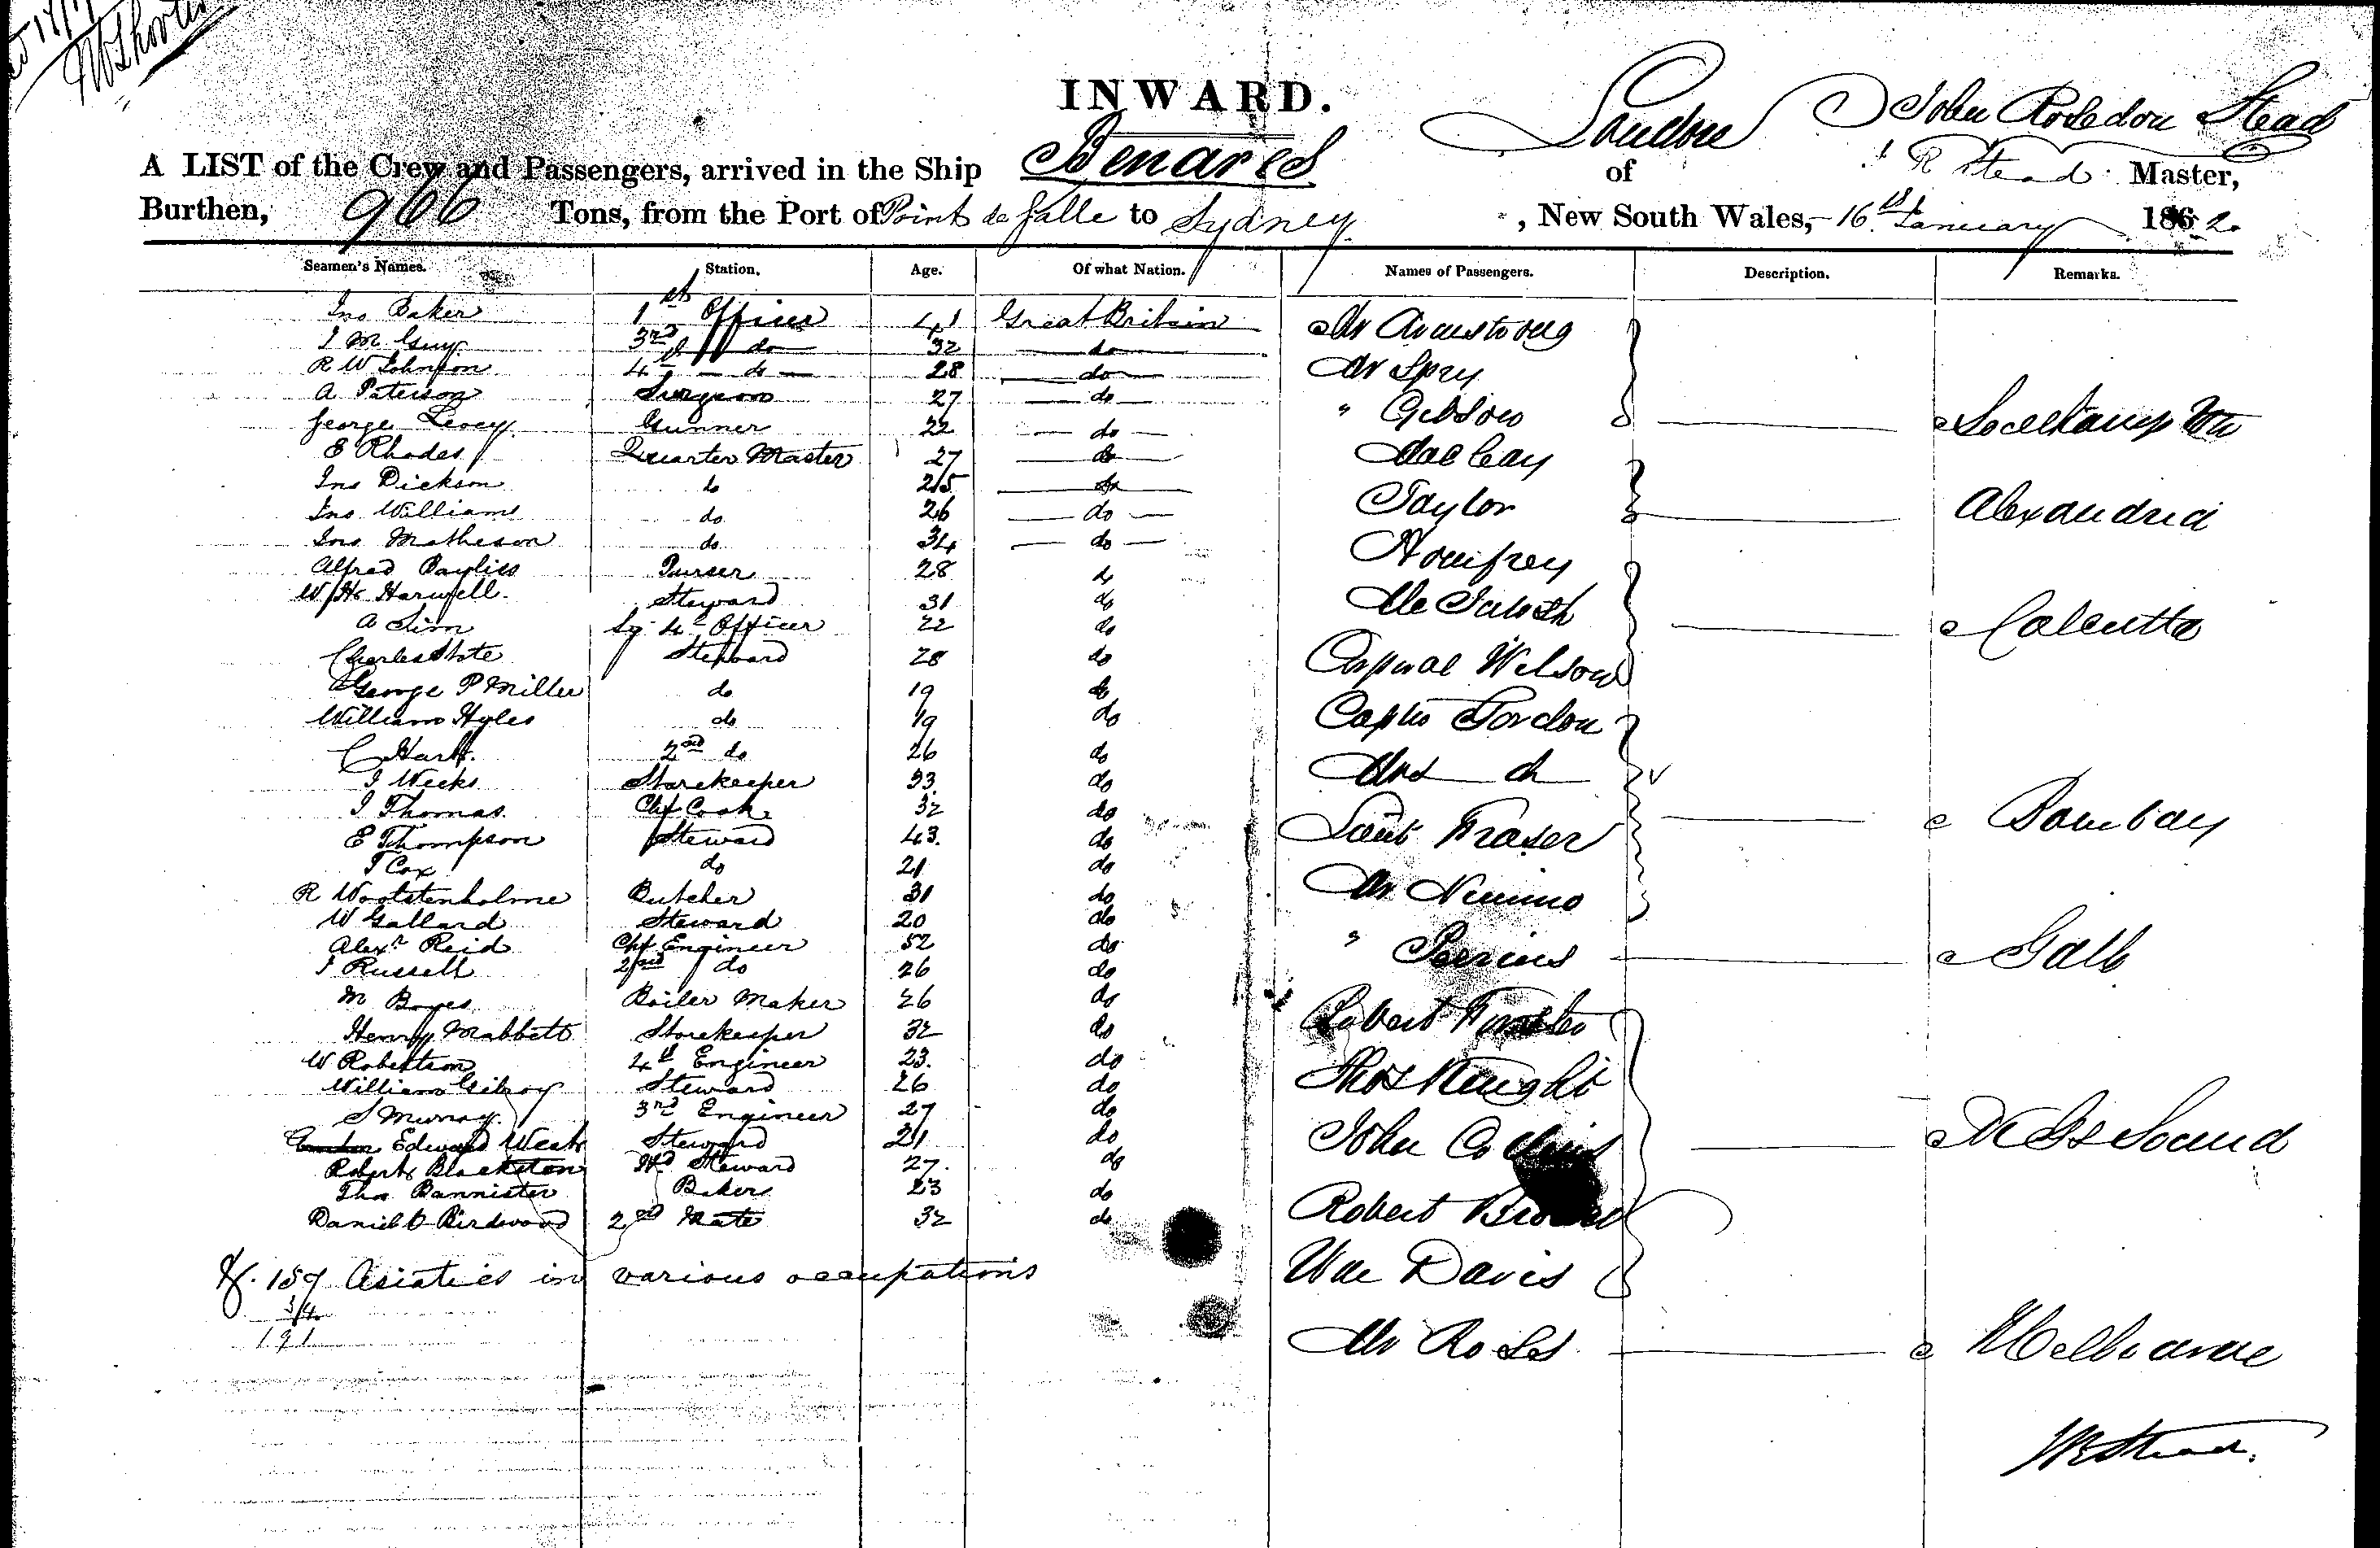 INWARD.
London John Rosedon Stead
A LIST of the Crew and Passengers, arrived in the Ship Benares of J R Stead Master,
Burthen, 966 Tons, from the Port of Point de Galle to Sydney, New South Wales, 16th January 1862
Seamen's Names. Station. Age. Of what Nation. Names of Passengers. Description. Remarks.
Jno Baker 1st Officer 41 Great Britain
J M Guy 3rd do 32 do
R W Johnson 4th do 28 do
A Paterson Surgeon 27 do
George Levey Gunner 22 do
E Rhodes Quarter Master 27 do
Jno Dickson do 25 do
Jno Williams do 26 do
Jno Matheson do 34 do
Alfred Bayliss Purser 28 do
W H Harwell Steward 31 do
A Sim 4th Officer 22 do
Charles State Steward 28 do
George P Miller do 19 do
William Hyles do 19 do
C Hart 2nd do 26 do
J Weeks Storekeeper 33 do
J Thomas Chf Cook 32 do
E Thompson Steward 43 do
T Cox do 21 do
R Wootstenholme Butcher 31 do
W Gallard Steward 20 do
Alexr Reid Chf Engineer 52 do
J Russell 2nd do 26 do
M Boyes Boiler Maker 26 do
Henry Mabbett Storekeeper 32 do
W Robertson 4th Engineer 23 do
William Gilroy Steward 26 do
S Murray 3rd Engineer 27 do
Edward West Steward 21 do
Robert Blackston Steward 27 do
Thos Bannister Baker 23 do
Daniel O Birdwood 2nd Mate 32 do
& 157 Asiatics in various occupations
34
191
Mr Armstrong
Mr Spry
" Gibson Southampton
Macleay
Taylor Alexandria
Homfrey
McIntosh Calcutta
Corporal Wilson
Captn Gordon
Mrs do
Lieut Fraser Bombay
Mr Nimmo
" Perrins Galle
Robert
Thos Knight
John Collins K G Sound
Robert Brown
Wm Davis
Mr Ross Melbourne
J R Stead.